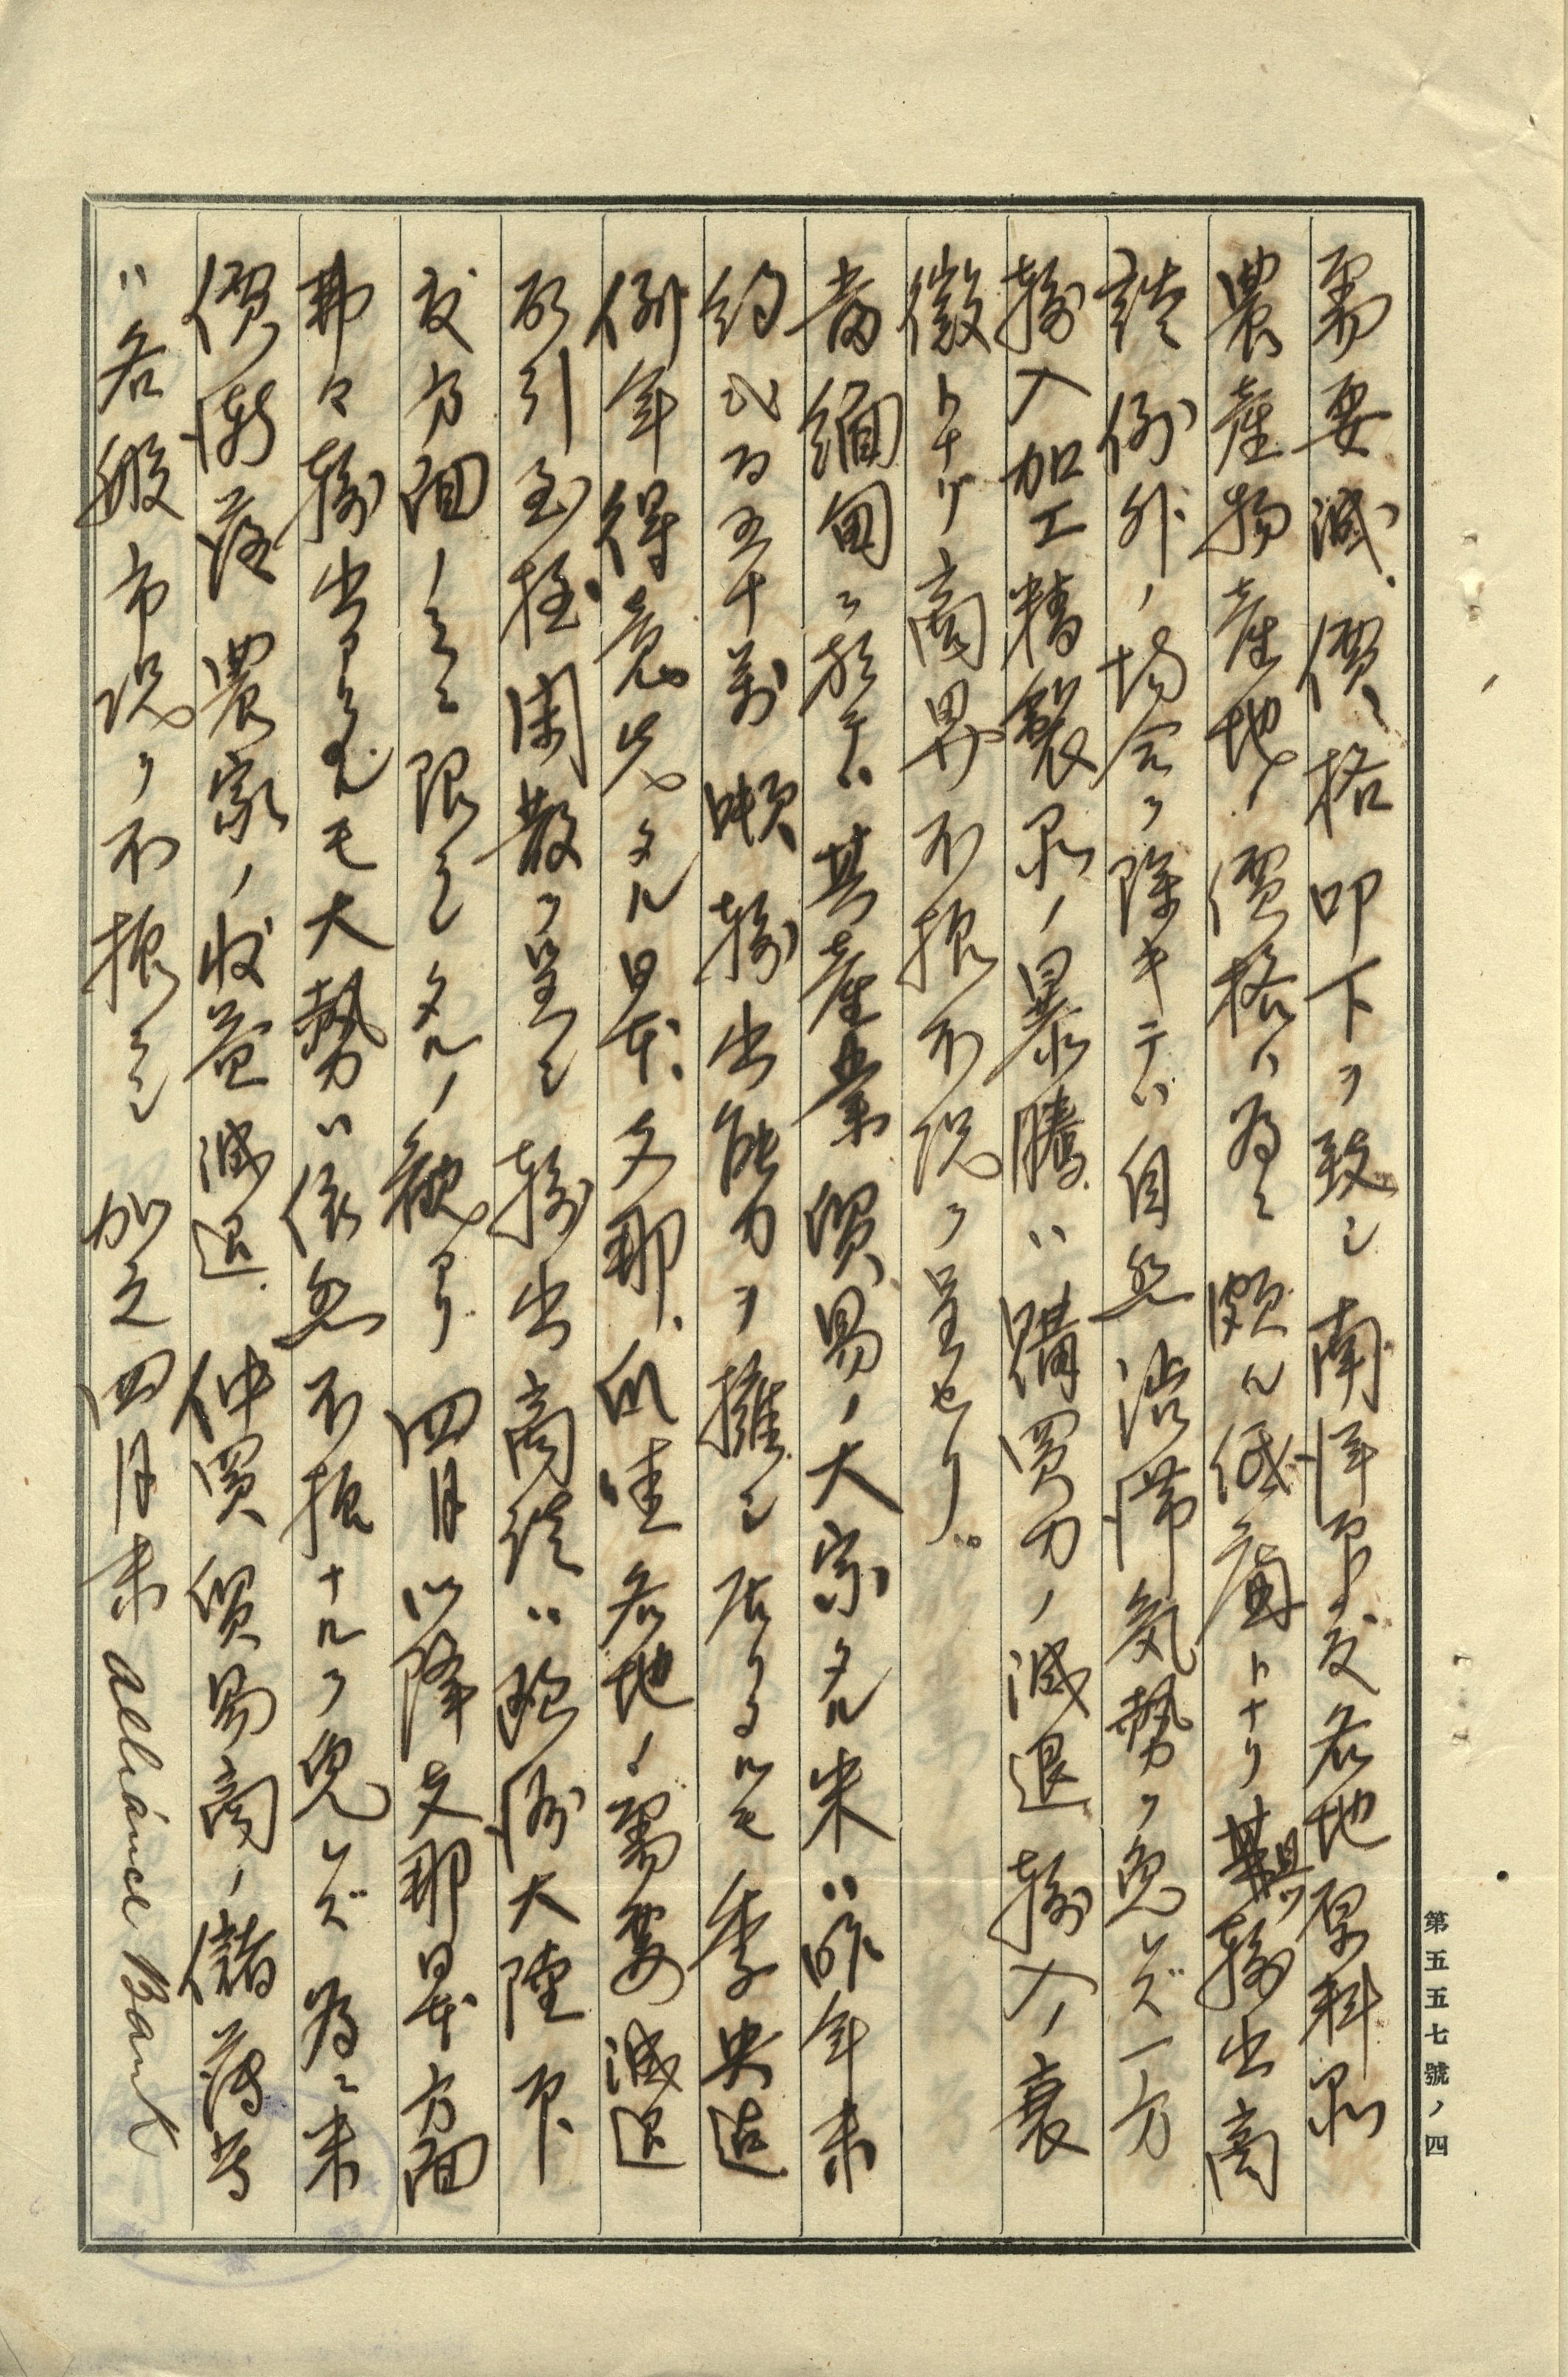 需要減、價格叩下ヲ致シ南洋印度各地原料品
農産物産地ノ價格ハ為ニ頗ル低廉トナリ輸出商
談例外ノ場合ヲ除キテハ自然澁滞気勢ヲ免レズ一方
輸入加工精製品ノ暴騰ハ購買力ノ減退輸入ノ衰
微トナリ商界不振不況ヲ呈セリ。
當緬甸ニ於テハ其産業貿易ノ大宗タル米ハ昨年末
約弐百五十萬噸輸出能力ヲ擁シ居リタルモ季央迄
例年得意先タル日本、支那、爪哇各地ノ需要減退
取引至極閑散ヲ呈シ輸出商談ハ欧洲大陸印
度方面ノミニ限ラレタルノ観アリ四月以降支那日本方面
弗々輸出アリタルモ大勢ハ依然不振ナルヲ免レズ為ニ米
價漸落農家ノ収益減退仲買貿易商ノ儲薄等
ハ各般市況ヲ不振ニシ加之四月末Alliance Bank
第五五七號ノ四